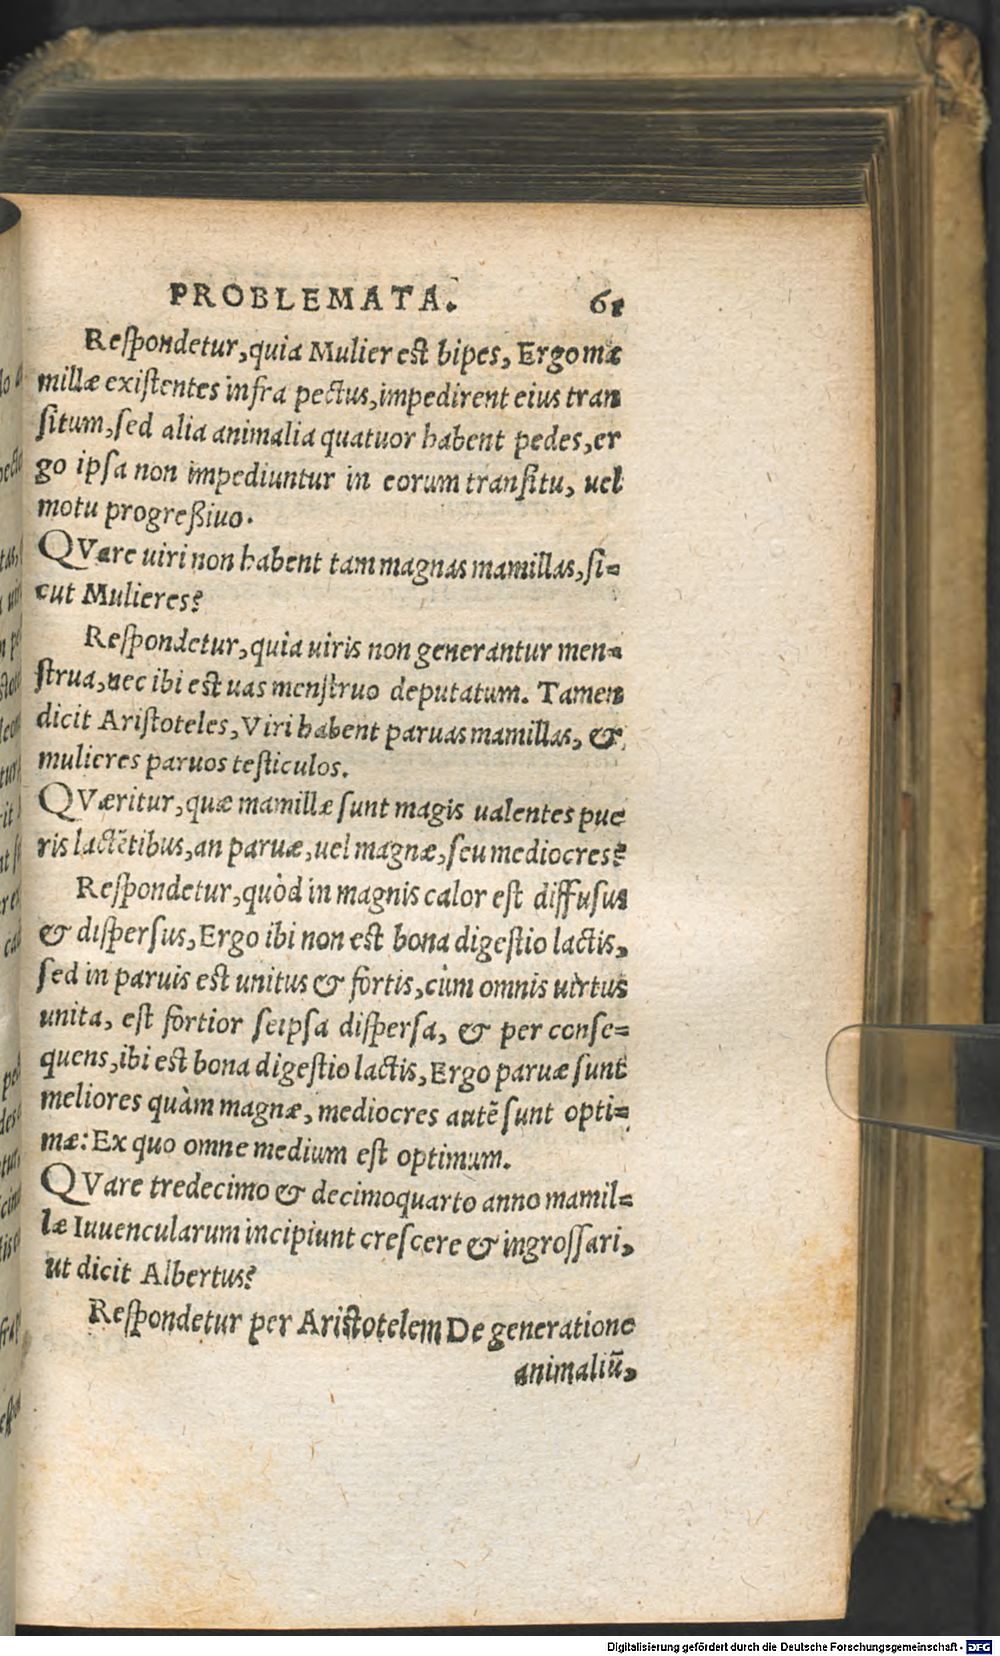 PROBLEMATA. 61
Respondetur, quia Mulier est bipes, Ergo ma
millæ existentes infra pectus, impedirent eius tran
situm, sed alia animalia quatuor habent pedes, er
go ipsa non impediuntur in eorum transitu, uel
motu progreßiuo.
QVare uiri non habent tam magnas mamillas, si=
cut Mulieres?
Respondetur, quia uiris non generantur men=
strua, nec ibi est uas menstruo deputatum. Tamen
dicit Aristoteles, Viri habent paruas mamillas, &
mulieres paruos testiculos.
QVæritur, quæ mamillæ sunt magis ualentes pue
ris lactẽtibus, an paruæ, uel magnæ, seu mediocres?
Respondetur, quòd in magnis calor est diffusus
& dispersus, Ergo ibi non est bona digestio lactis,
sed in paruis est unitus & fortis, cùm omnis uirtus
unita, est fortior seipsa dispersa, & per conse=
quens, ibi est bona digestio lactis, Ergo paruæ sunt
meliores quàm magnæ, mediocres autẽ sunt opti=
mæ: Ex quo omne medium est optimum.
QVare tredecimo & decimoquarto anno mamil=
læ Iuuencularum incipiunt crescere & ingrossari,
ut dicit Albertus?
Respondetur per Aristotelem De generatione
animaliũ,
Digitalisierung gefördert durch die Deutsche Forschungsgemeinschaft - DFG